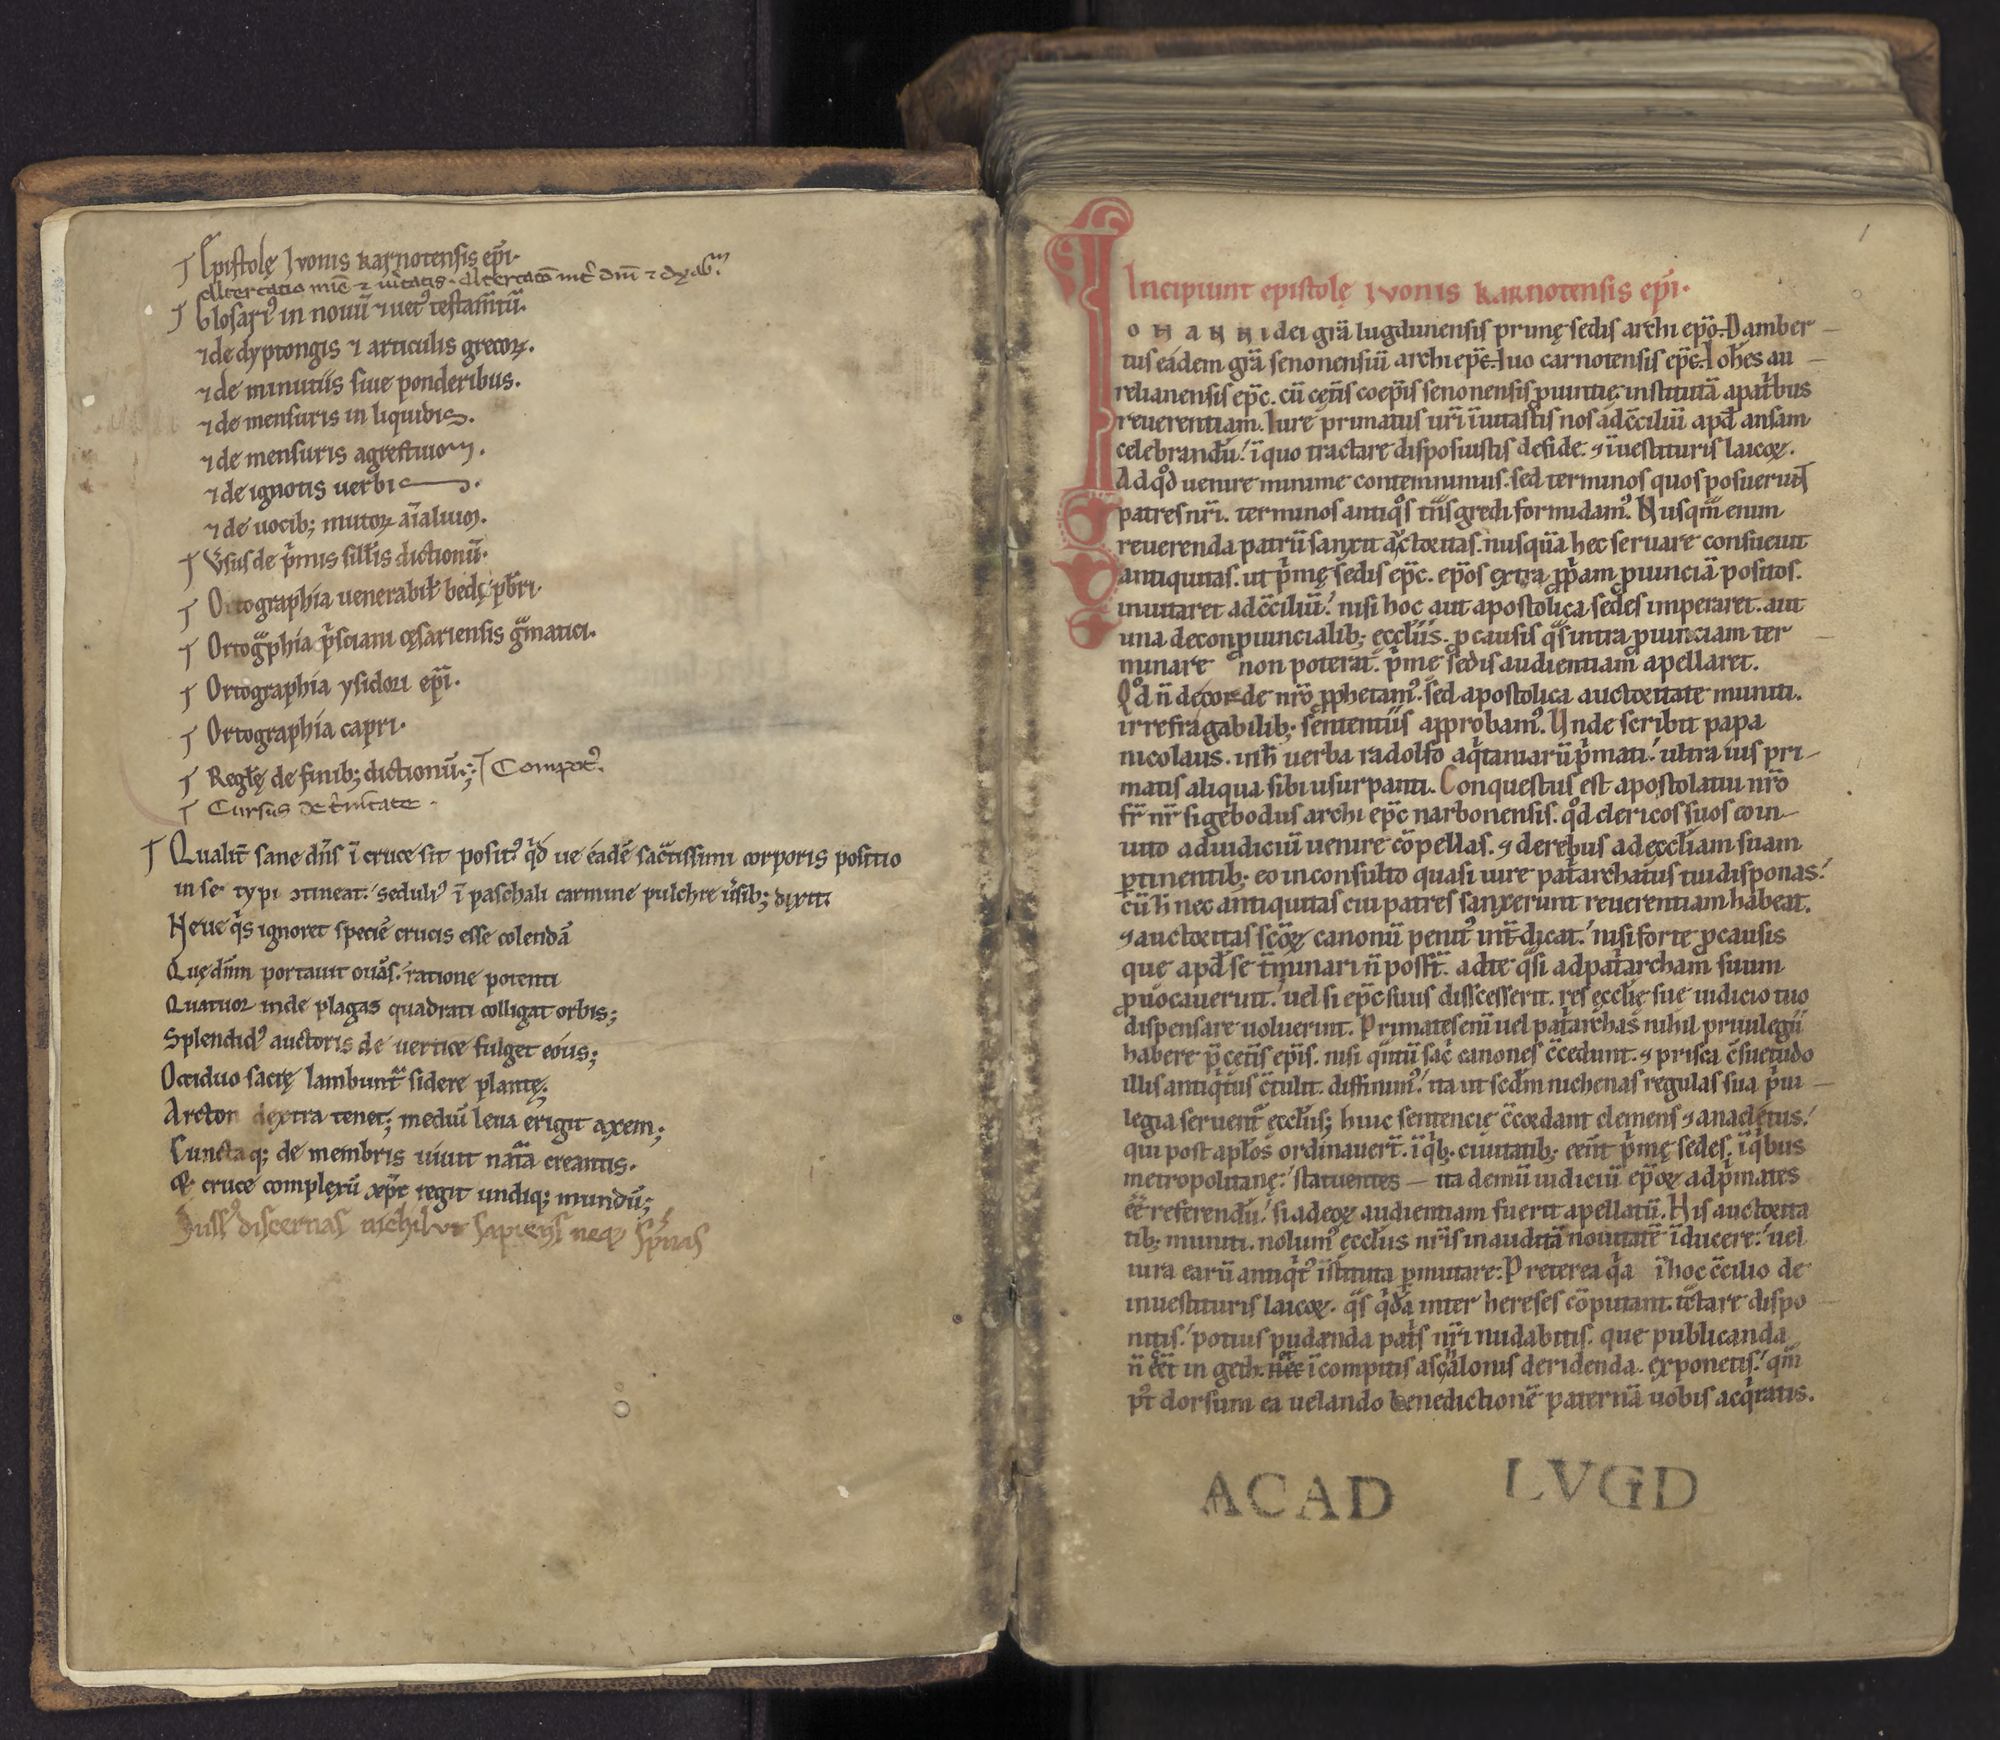 Epistolę Ivonis karnotensis ep̄i.
Altercatio
Glosari᷒ in nouū ⁊ uet᷒ testam̄tū.
⁊ de dyptongis ⁊ articulis grecoꝝ.
⁊ de minutiis siue ponderibus.
⁊ de mensuris in liquidis.
⁊ de mensuris agrestiuom.
⁊ de ignotis uerbis.
⁊ de uocib; mutoꝝ āīaliuꝫ.
V̄sus de p̄mis sill̄is dictionū.
Ortographia uenerabil̄ bedę p̄bri.
Ortog̃phia p̄sciani cęsariensis g̃matici.
Ortographia ysidori ep̄i.
Ortographia capri.
Regl̄ę de finib; dictionū.; Compot᷒.
Cursus de t̄nitate.
Qualit̄ sane dn̄s ī cruce sit posit᷒ q̇d ue eadē sāctissimi corporis positio
in se typi ↄtineat. seduli᷒ ī paschali carmine pulchre ūsib; dixit.
Neue q̇s ignoret speciē crucis esse colendā
Quę dn̄m portauit ouās. ratione potenti
Quatuor inde plagas quadrati colligat orbis;
Splendid᷒ auctoris de uertice fulget eous;
Occiduo sacrę lambunt᷑ sidere plantę;
Arcton dextra tenet; mediū leua erigit axem;
Cunctaq; de membris uiuit nat̄a creantis.
Et cruce complexū xp̄c regit undiq; mundū;
discernas nichil ut sapiens neq;
Incipiunt epistolę Ivonis karnotensis ep̄i.
OHANNI dei gr̄a lugdunensis primę sedis archi ep̄o. Damber
tus eadem gr̄a senonensiū archiep̄c. Iuo carnotensis ep̄c. Ioh̄es au
relianensis ep̄c. cū cęt̄is coep̄is senonensis ꝓuintię. institutā a pat̄bus
reuerentiam. Iure primatus ur̄i īuitastis nos ad c̄ciliū apd̄ ansam
celebrandū. ī quo tractare disposuistis de fide. ⁊ īuestituris laicoꝝ.
Ad qd̊ uenire minime contemnimus. sed terminos quos posuerunt
patres nr̄i. terminos antiq̊s tn̄sgredi formidam᷒. Nusqm̄ enim
reuerenda patrū sanxit auctoritas. nusquā hec seruare consueuit
antiquitas. ut p̄mę sedis ep̄c. ep̄os extra ꝓp̄am ꝓuinciā positos.
inuitaret ad c̄ciliū. nisi hoc aut apostolica sedes imperaret. aut
una de conꝓuincialib; ęccl̄iis. ꝓ causis q̄s intra ꝓuinciam ter
minare non poterat. p̄mę sedis audientiam apellaret.
Qd̊ n̄ de corde nr̄o ꝓphetam᷒. sed apostolica auctoritate muniti.
irrefragabilib; sententiis approbam᷒. Vnde scribit papa
nicolaus. int̄ uerba radolfo aq̇taniarū p̄mati. ultra ius pri
matis aliqua sibi usurpanti. Conquestus est apostolatui nr̄o
fr̄ nr̄ sigebodus archi ep̄c narbonensis. qd̊ clericos suos eo in
uito ad iudiciū uenire cōpellas. ⁊ de rebus ad ęccl̄iam suam
ꝑtinentib; eo inconsulto quasi iure pat̄archatus tui disponas.
cū h̄ nec antiquitas cui patres sanxerunt reuerentiam habeat.
⁊ auctoritas sc̄oꝝ canonū penit᷒ int̄dicat. nisi forte ꝓ causis
que apd̄ se t̄minari n̄ poss̄t. ad te q̄si ad pat̄archam suum
ꝓuocauerunt. uel si ep̄c suus discesserit. res ęccl̄ię sue iudicio tuo
dispensare uoluerint. Primates enī uel pat̄archas nihil priuilegii
habere p̄ cet̄is ep̄is. nisi q̄ntū sac̄ canones c̄cedunt. ⁊ prisca c̄suetudo
illis antiq̇tus c̄tulit. diffinim᷒. ita ut scd̄m nichenas regulas sua p̄ui
legia seruent᷑ ęccl̄iis; huic sentencię c̄cordant clemens ⁊ anacletus.
qui post apl̄os ordinauer̄t. ī q̇b; ciuitatib; ēēnt p̄mę sedes. ī q̇bus
metropolitanę. statuentes ita demū iudiciū ep̄oꝝ ad p̄mates
ēē referendū. si ad eoꝝ audientiam fuerit apellatū. His auctorita
tib; muniti. nolum᷒ ęccl̄iis nr̄is inauditā nouitatē īducere. uel
iura earū antiq̇t᷒ īstituta ꝑmutare. Preterea q̇a ī hoc c̄cilio de
inuestituris laicoꝝ. q̄s q̇dā inter hereses cōputant. t̄ctare dispo
nitis. potius pudenda pat̄s nr̄i nudabitis. que publicanda
n̄ ēēt in geth. nec ī compitis ascalonis deridenda. exponetis. qm̄
pt̊ dorsum ea uelando benedictionē paternā uobis acq̇ratis.
ACAD LVGD
1